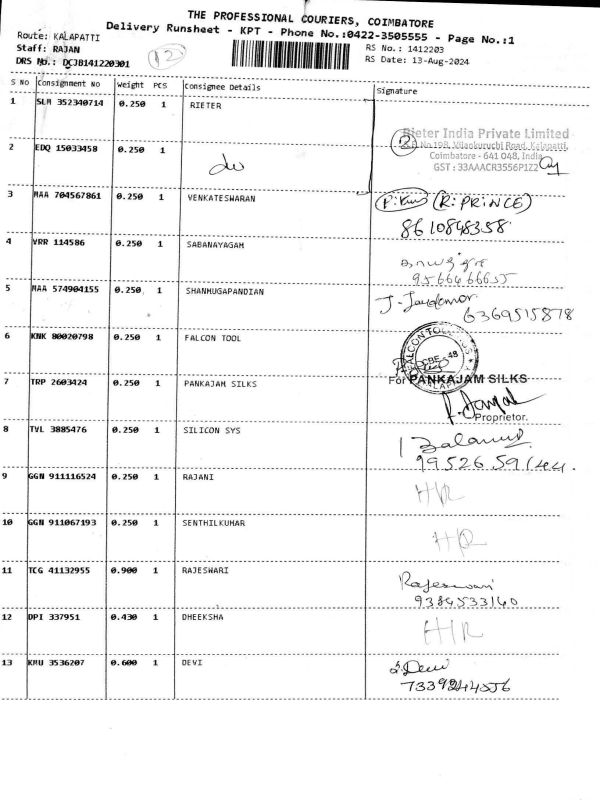 THE PROFESSIONAL COURIERS, COIMBATORE
Delivery Runsheet - KPT - Phone No.:0422-3505555 - Page No.:1
Route: KALAPATTI
Staff: RAJAN
DRS No.: DCJB141220301
12
RS No.: 1412203
RS Date: 13-Aug-2024
S No Consignment No Weight PCS Consignee Details Signature
1 SLM 352340714 0.250 1 RIETER
Rieter India Private Limited
Vilankuruchi Road, Kalapatti,
Coimbatore - 641 048, India
GST : 33AAACR3556P1Z2
2
2 EDQ 15033458 0.250 1 do
3 MAA 704567861 0.250 1 VENKATESWARAN (R: PRINCE)
8610848358
4 VRR 114586 0.250 1 SABANAYAGAM
9566466655
5 MAA 574904155 0.250 1 SHANHUGAPANDIAN
6369515878
6 KNK 80020798 0.250 1 FALCON TOOL
CBE - 48
7 TRP 2603424 0.250 1 PANKAJAM SILKS
For PANKAJAM SILKS
Proprietor.
8 TVL 3885476 0.250 1 SILICON SYS
99526 59144.
9 GGN 911116524 0.250 1 RAJANI H/R
10 GGN 911067193 0.250 1 SENTHILKUHAR H/R
11 TCG 41132955 0.900 1 RAJESWARI Rajeswari
9384533140
12 DPI 337951 0.430 1 DHEEKSHA H/R
13 KMU 3536207 0.600 1 DEVI S. Devi
7339244556